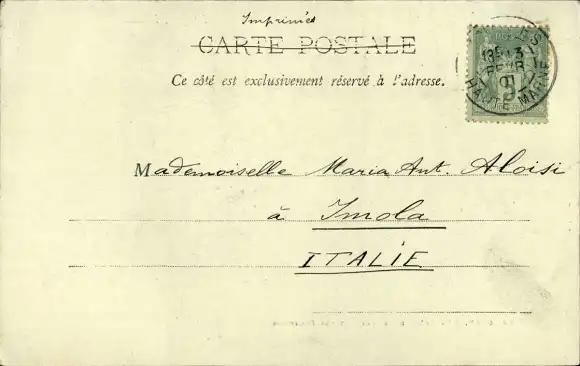 Imprimés
CARTE POSTALE
Ce côté est exclusivement réservé à l'adresse.
13
FEVR
01
HAUTE MARNE
Mademoiselle Maria Ant. Aloisi
à Imola
ITALIE